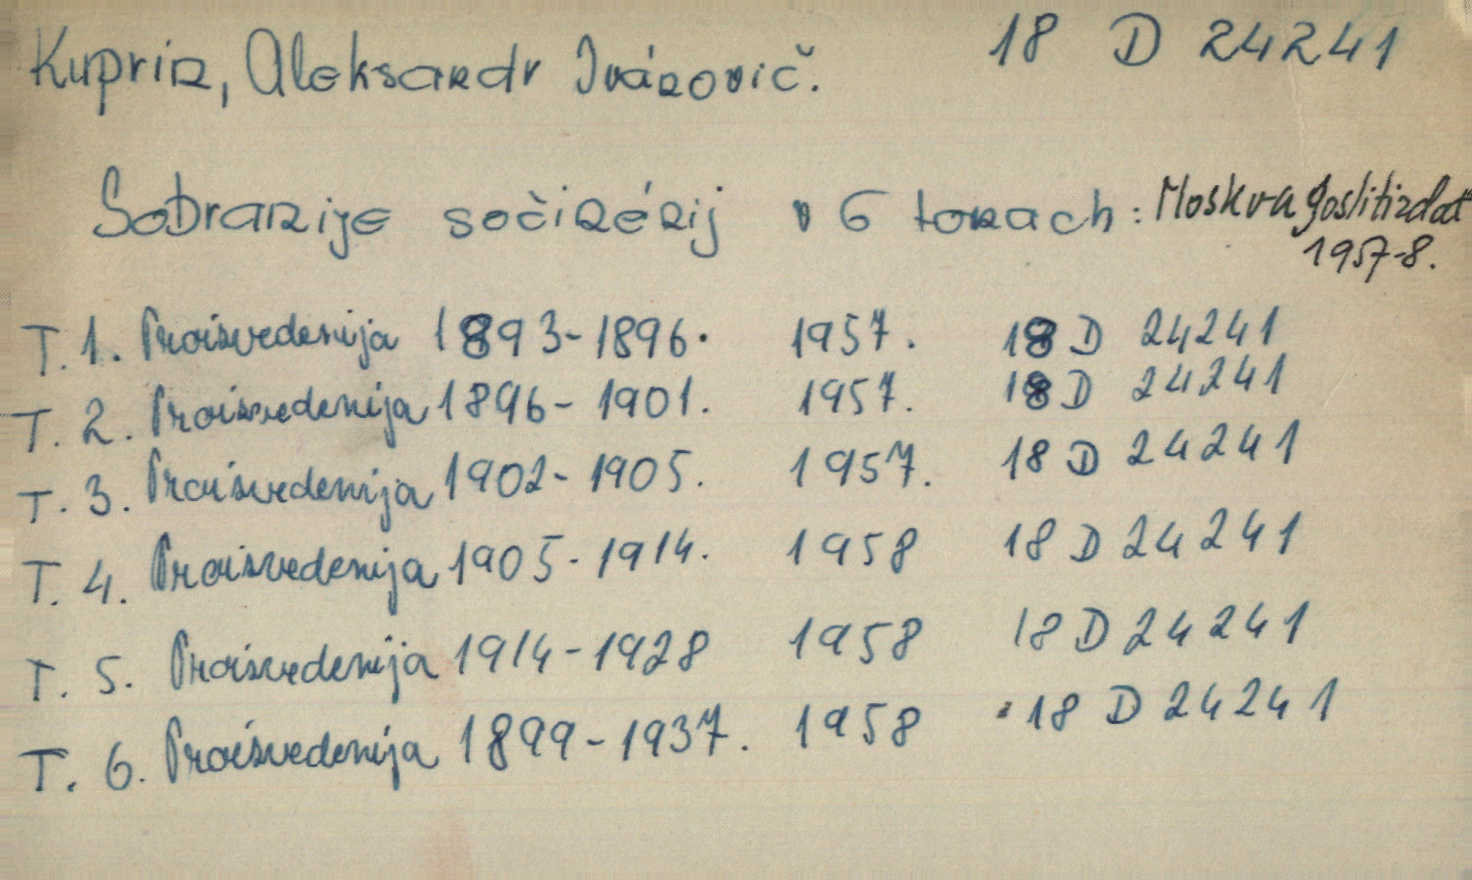 Kuprin, Aleksandr Ivánovič. 18 D 24241
Sobranije sočinénij v 6 tomach: Moskva Goslitizdat
1957-8.
T. 1. Proisvedenija 1893-1896. 1957. 18 D 24241
T. 2. Proisvedenija 1896-1901. 1957. 18 D 24241
T. 3. Proisvedenija 1902-1905. 1957. 18 D 24241
T. 4. Proisvedenija 1905-1914. 1958 18 D 24241
T. 5. Proisvedenija 1914-1928 1958 18 D 24241
T. 6. Proisvedenija 1899-1937. 1958 18 D 24241